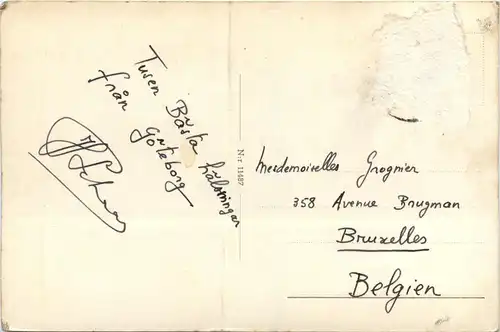 Tusen Bästa hälsningar
från Göteborg
N:r 11487
Mesdemoiselles Grognier
358 Avenue Brugman
Bruxelles
Belgien